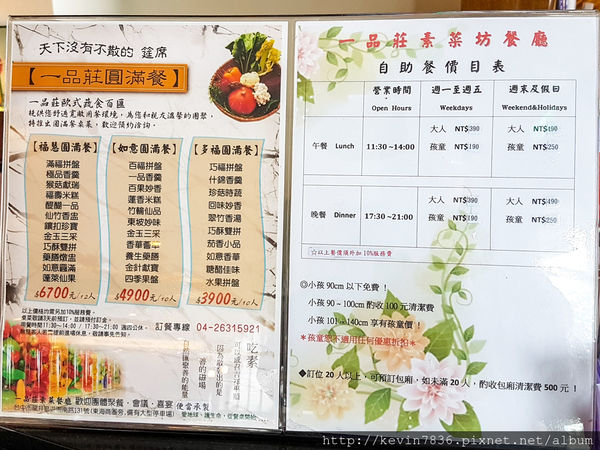 天下沒有不散的 筵席
【一品莊圓滿餐】
一品莊歐式蔬食百匯
【福慧圓滿餐】
滿福拼盤
極品香羹
猴菇獻瑞
福壽米糕
醍醐一品
仙竹香盅
鑲扣珍寶
金玉三采
巧酥雙拼
藥膳燉盅
如意圓滿
蓬萊仙果
$6700元/12人
【如意圓滿餐】
百福拼盤
一品香羹
百果妙香
蓮香米糕
竹輪仙品
東坡妙味
金玉三采
香華薈
養生藥膳
金針獻寶
四季果盤
$4900元/10人
【多福圓滿餐】
巧福拼盤
什錦香羹
珍菇時蔬
回味妙香
翠竹香湯
巧酥雙拼
茄香小品
如意香華
糖醋佳味
水果拼盤
$3900元/10人
以上價格均需另加10%服務費
素菜敬請3天前預訂，並請預付訂金。
用餐時間11:30~14:00 / 17:30~21:00 週四公休。
訂餐專線 04-26315921
吃素
一品莊素菜餐廳 歡迎團體聚餐、會議、喜宴 便當承製
一品莊素菜坊餐廳
自助餐價目表
營業時間
Open Hours
週一至週五
Weekdays
週末及假日
Weekend&Holidays
午餐 Lunch
11:30 ~14:00
大人 NT$390
孩童 NT$190
大人 NT$490
孩童 NT$250
晚餐 Dinner
17:30 ~21:00
大人 NT$390
孩童 NT$190
大人 NT$490
孩童 NT$250
☆以上餐價須外加 10%服務費
◎小孩 90cm 以下免費！
小孩 90 ~ 100cm 酌收 100 元清潔費
小孩 101~140cm 享有孩童價！
＊孩童恕不適用任何優惠折扣＊
◆訂位 20 人以上，可預訂包廂，如未滿 20 人，酌收包廂清潔費 500 元！
http://kevin7836.pixnet.net/album